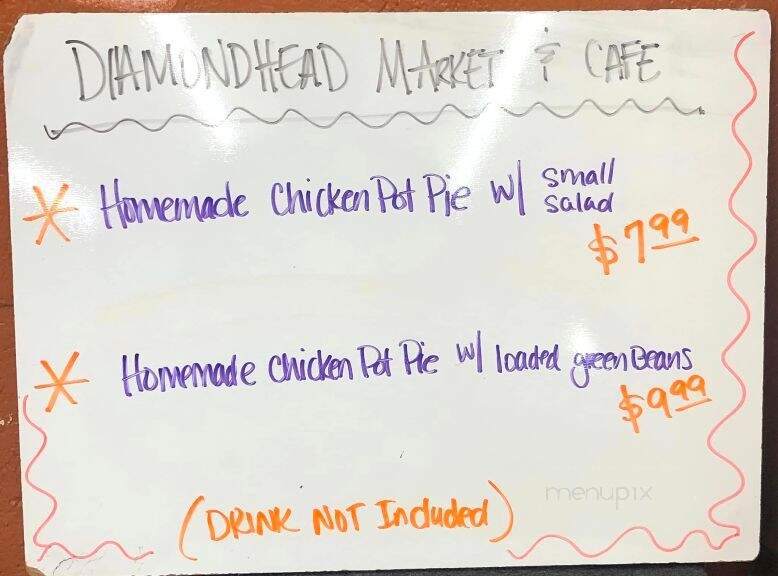 DIAMONDHEAD MARKET & CAFE
Homemade Chicken Pot Pie w/ small salad
$7.99
Homemade Chicken Pot Pie w/ loaded green Beans
$9.99
(DRINK NOT Included)
menupix